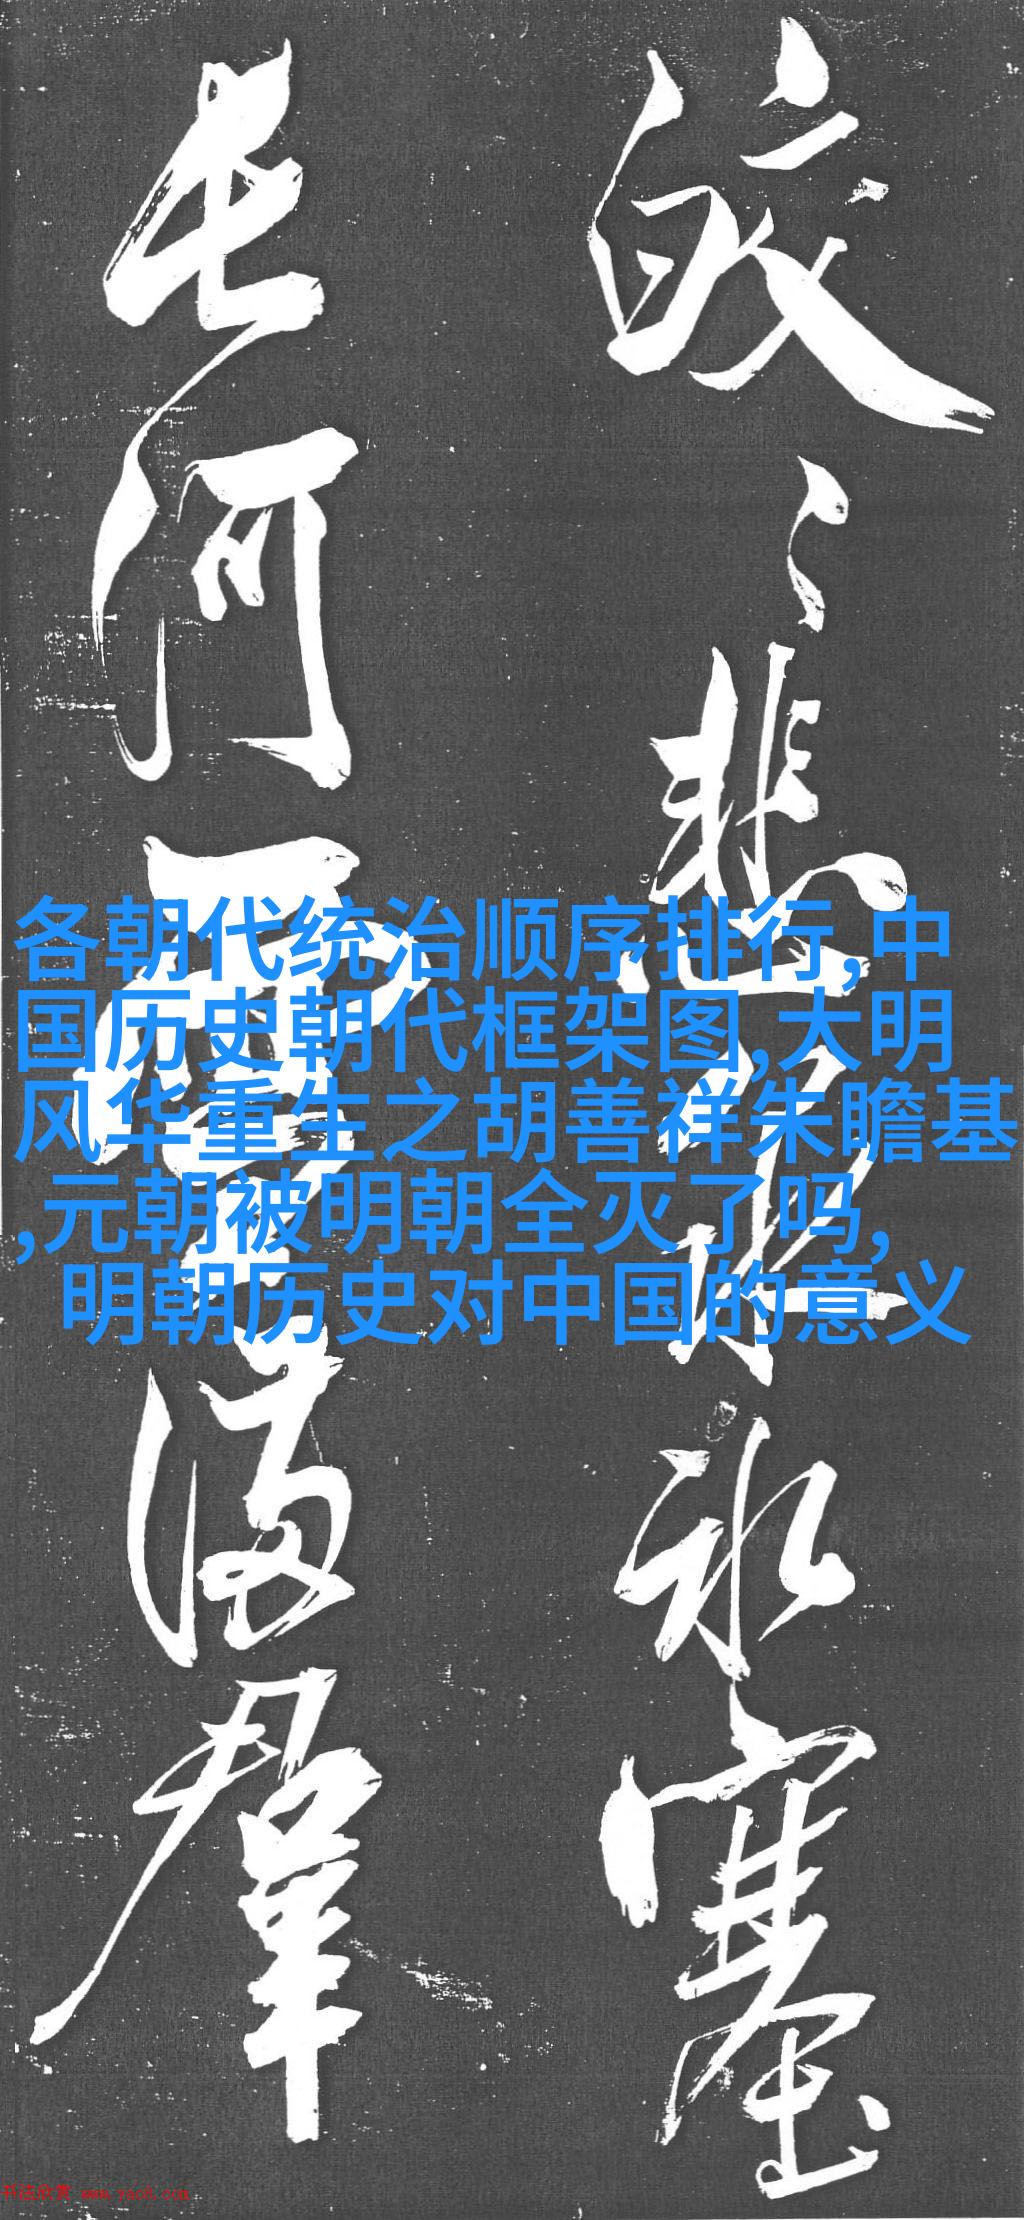 皎〻悲泉氷塞
長河雪满群
各朝代统治顺序排行,中
国历史朝代框架图,大明
风华重生之胡善祥朱瞻基
,元朝被明朝全灭了吗,
明朝历史对中国的意义
书法欣赏 www.yac8.com